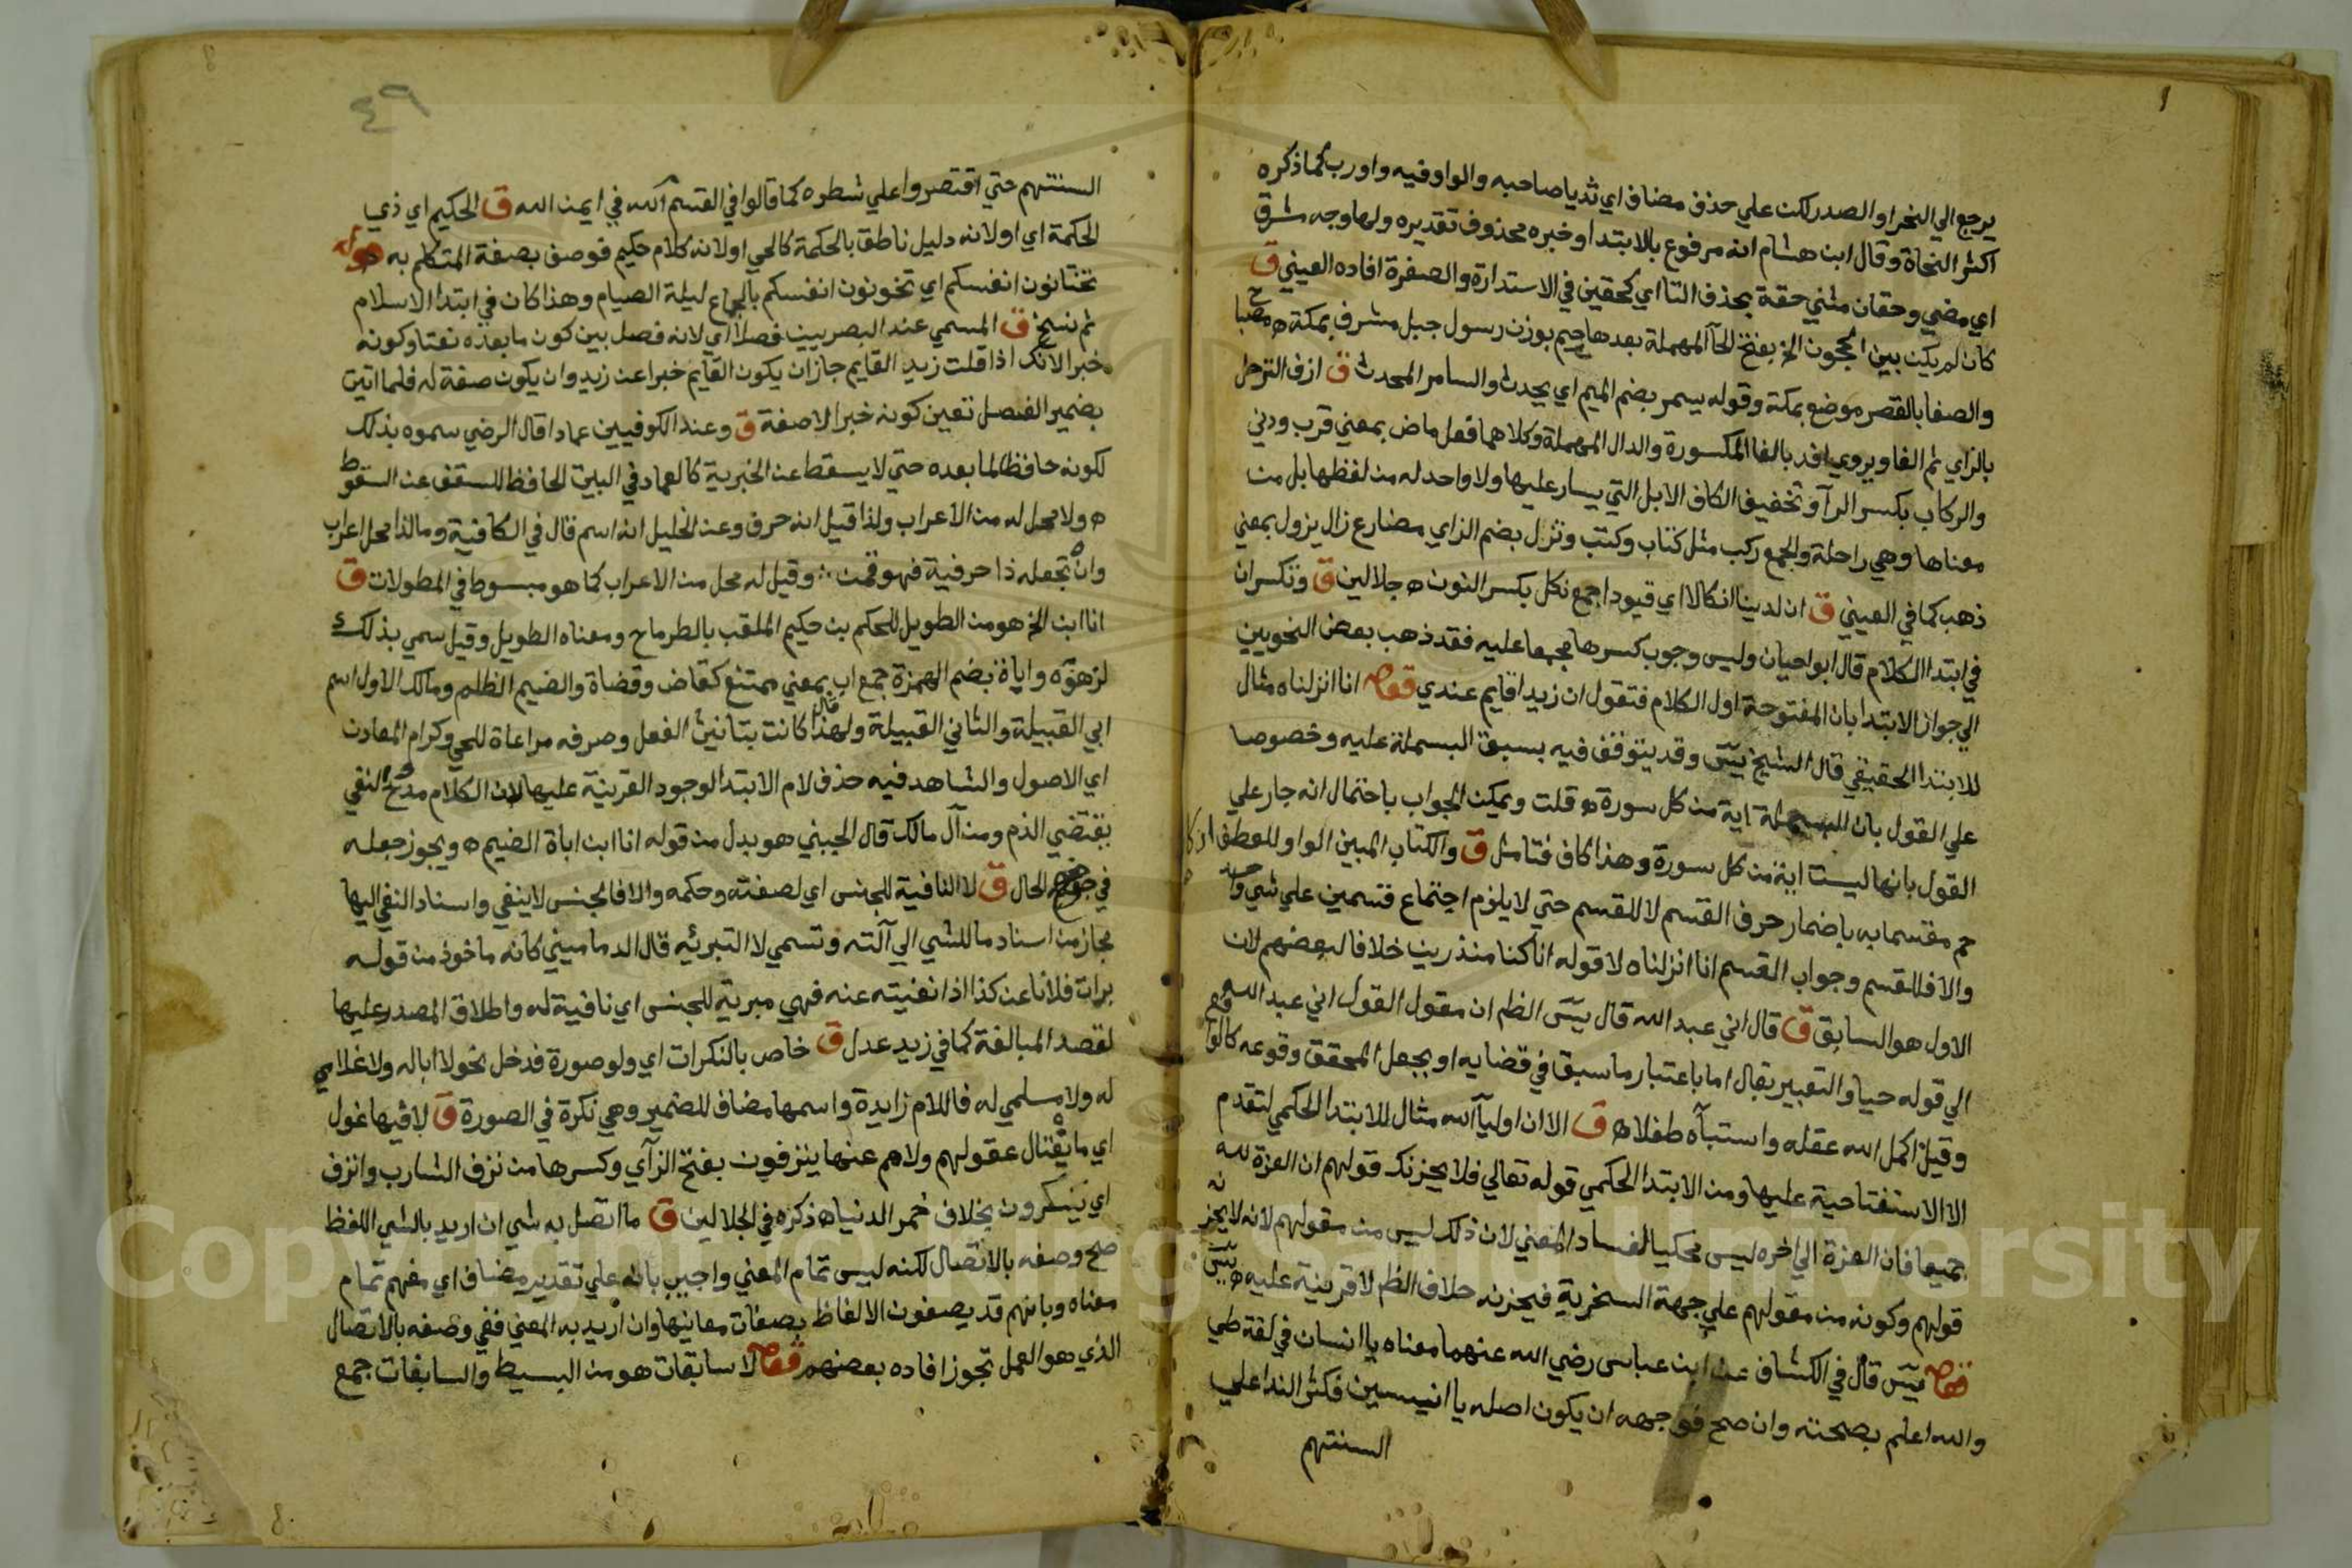 يرجع الي النحر او الصدر لكن علي حذف مضاف اي ثديا صاحبه والواو فيه واو رب كما ذكره
اكثر النحاة وقال ابن هشام انه مرفوع بالابتدا وخبره محذوف تقديره ولها وجه مشرق
اي مضي وحقان مثني حقة بحذف التا اي كحقين في الاستدارة والصفرة افاده العيني ق
كان لم يكن بين الحجون الخ بفتح الحآ المهملة بعدها جيم بوزن رسول جبل مشرف بمكة ه مصبا
والصفا بالقصر موضع بمكة وقوله يسمر بضم الميم اي يحدث والسامر المحدث ق ازف الترحل
بالزاي ثم الفا ويروي افد بالفا المكسورة والدال المهملة وكلاهما فعل ماض بمعني قرب ودني
والركاب بكسر الرآ وتخفيف الكاف الابل التي يسار عليها ولا واحد له من لفظها بل من
معناها وهي راحلة والجمع ركب مثل كتاب وكتب وتزل بضم الزاي مضارع زال يزول بمعني
ذهب كما في العيني ق ان لدينا انكالا اي قيودا جمع نكل بكسر النون ه جلالين ق وتكسر ان
في ابتدا الكلام قال ابو احيان وليس وجوب كسرها مجمعا عليه فقد ذهب بعض النحويين
الي جواز الابتدا بان المفتوحة اول الكلام فتقول ان زيدا قايم عندي قوله انا انزلناه مثال
للابتدا الحقيقي قال الشيخ يسٓ وقد يتوقف فيه بسبق البسملة عليه وخصوصا
علي القول بان البسملة اية من كل سورة ه قلت ويمكن الجواب باحتمال انه جار علي
القول بانها ليست اية من كل سورة وهذا كاف فتامل ق والكتاب المبين الواو للعطف ان كا
حم مقسما به باضمار حرف القسم لا للقسم حتي لا يلزم اجتماع قسمين علي شي واحد
والا فللقسم وجواب القسم انا انزلناه لا قوله انا كنا منذرين خلافا لبعضهم لان
الاول هو السابق ق قال اني عبد الله قال يسٓ الظم ان مقول القول اني عبد الله
الي قوله حيا والتعبير يقال اما باعتبار ما سبق في قضايه او بجعل المحقق وقوعه كالواقع
وقيل اكمل الله عقله واستبآه طفلا ه ق الا ان اوليآ الله مثال للابتدا الحكمي لتقدم
الا الاستفتاحية عليها ومن الابتدا الحكمي قوله تعالي فلا يحزنك قولهم ان العزة لله
جميعا فان العزة الي اخره ليس محكيا لفساد المعني لان ذلك ليس من مقولهم لانه لا يحزنه
قولهم وكونه من مقولهم علي جهة السخرية فيحزنه خلاف الظم لا قرينة عليه ه يسٓ
قوله يسٓ قال في الكشاف عن ابن عباس رضي الله عنهما معناه يا انسان في لغة طي
والله اعلم بصحته وان صح فوجهه ان يكون اصله يا انيسين فكثر الندا علي
السنتهم
٤٩
السنتهم حتي اقتصروا علي شطره كما قالوا في القسم مُ الله في ايمن الله ق الحكيم اي ذي
الحكمة اي او لانه دليل ناطق بالحكمة كالحي او لانه كلام حكيم فوصف بصفة المتكلم به ه قوله
تختانون انفسكم اي تخونون انفسكم بالجماع ليلة الصيام وهذا كان في ابتدا الاسلام
ثم نسخ ق المسمي عند البصريين فصلا اي لانه فصل بين كون ما بعده نعتا وكونه
خبرا لانك اذا قلت زيد القايم جاز ان يكون القايم خبرا عن زيد وان يكون صفة له فلما اتيت
بضمير الفصل تعين كونه خبرا لا صفة ق وعند الكوفيين عمادا قال الرضي سموه بذلك
لكونه حافظا لما بعده حتي لا يسقط عن الخبرية كالعماد في البيت الحافظ للسقف عن السقوط
ه ولا محل له من الاعراب ولذا قيل انه حرف وعن الخليل انه اسم قال في الكافية وما لذا محل اعراب
وان تجعله ذا حرفية فهو قمن ؞ وقيل له محل من الاعراب كما هو مبسوط في المطولات ق
انا ابن الخ هو من الطويل للحكم بن حكيم الملقب بالطرماح ومعناه الطويل وقيل سمي بذلك
لزهوه واباة بضم الهمزة جمع اب بمعني ممتنع كقاض وقضاة والضيم الظلم ومالك الاول اسم
ابي القبيلة والثاني القبيلة ولهذا قال كانت بتانيث الفعل وصرفه مراعاة للحي وكرام المعادن
اي الاصول والشاهد فيه حذف لام الابتدا لوجود القرينة عليها لان الكلام مدح والنفي
يقتضي الذم ومن آل مالك قال الجيبني هو بدل من قوله انا ابن اباة الضيم ه ويجوز جعله
في موضع الحال ق لا النافية للجنس اي لصفته وحكمه والا فالجنس لا ينفي واسناد النفي اليها
مجاز من اسناد ما للشي الي آلته وتسمي لا التبرئيه قال الدماميني كانه ماخوذ من قوله
برات فلانا عن كذا اذا نفيته عنه فهي مبرية للجنس اي نافية له واطلاق المصدر عليها
لقصد المبالغة كما في زيد عدل ق خاص بالنكرات اي ولو صورة فدخل نحو لا اباله ولا غلامي
له ولا مسلمي له فاللام زايدة واسمها مضاف للضمير وهي نكرة في الصورة ق لا فيها غول
اي ما يغتال عقولهم ولا هم عنها ينزفون بفتح الزآي وكسرها من نزف الشارب وانزف
اي يسكرون بخلاف خمر الدنيا ه ذكره في الجلالين ق ما اتصل به شي ان اريد بالشي اللفظ
صح وصفه بالاتصال لكنه ليس تمام المعني واجيب بانه علي تقدير مضاف اي مفهم تمام
معناه وبانهم قد يصفون الالفاظ بصفات معانيها وان اريد به المعني ففي وصفه بالاتصال
الذي هو العمل تجوز افاده بعضهم قوله لا سابغات هو من البسيط والسابغات جمع
Copyright © King Saud University